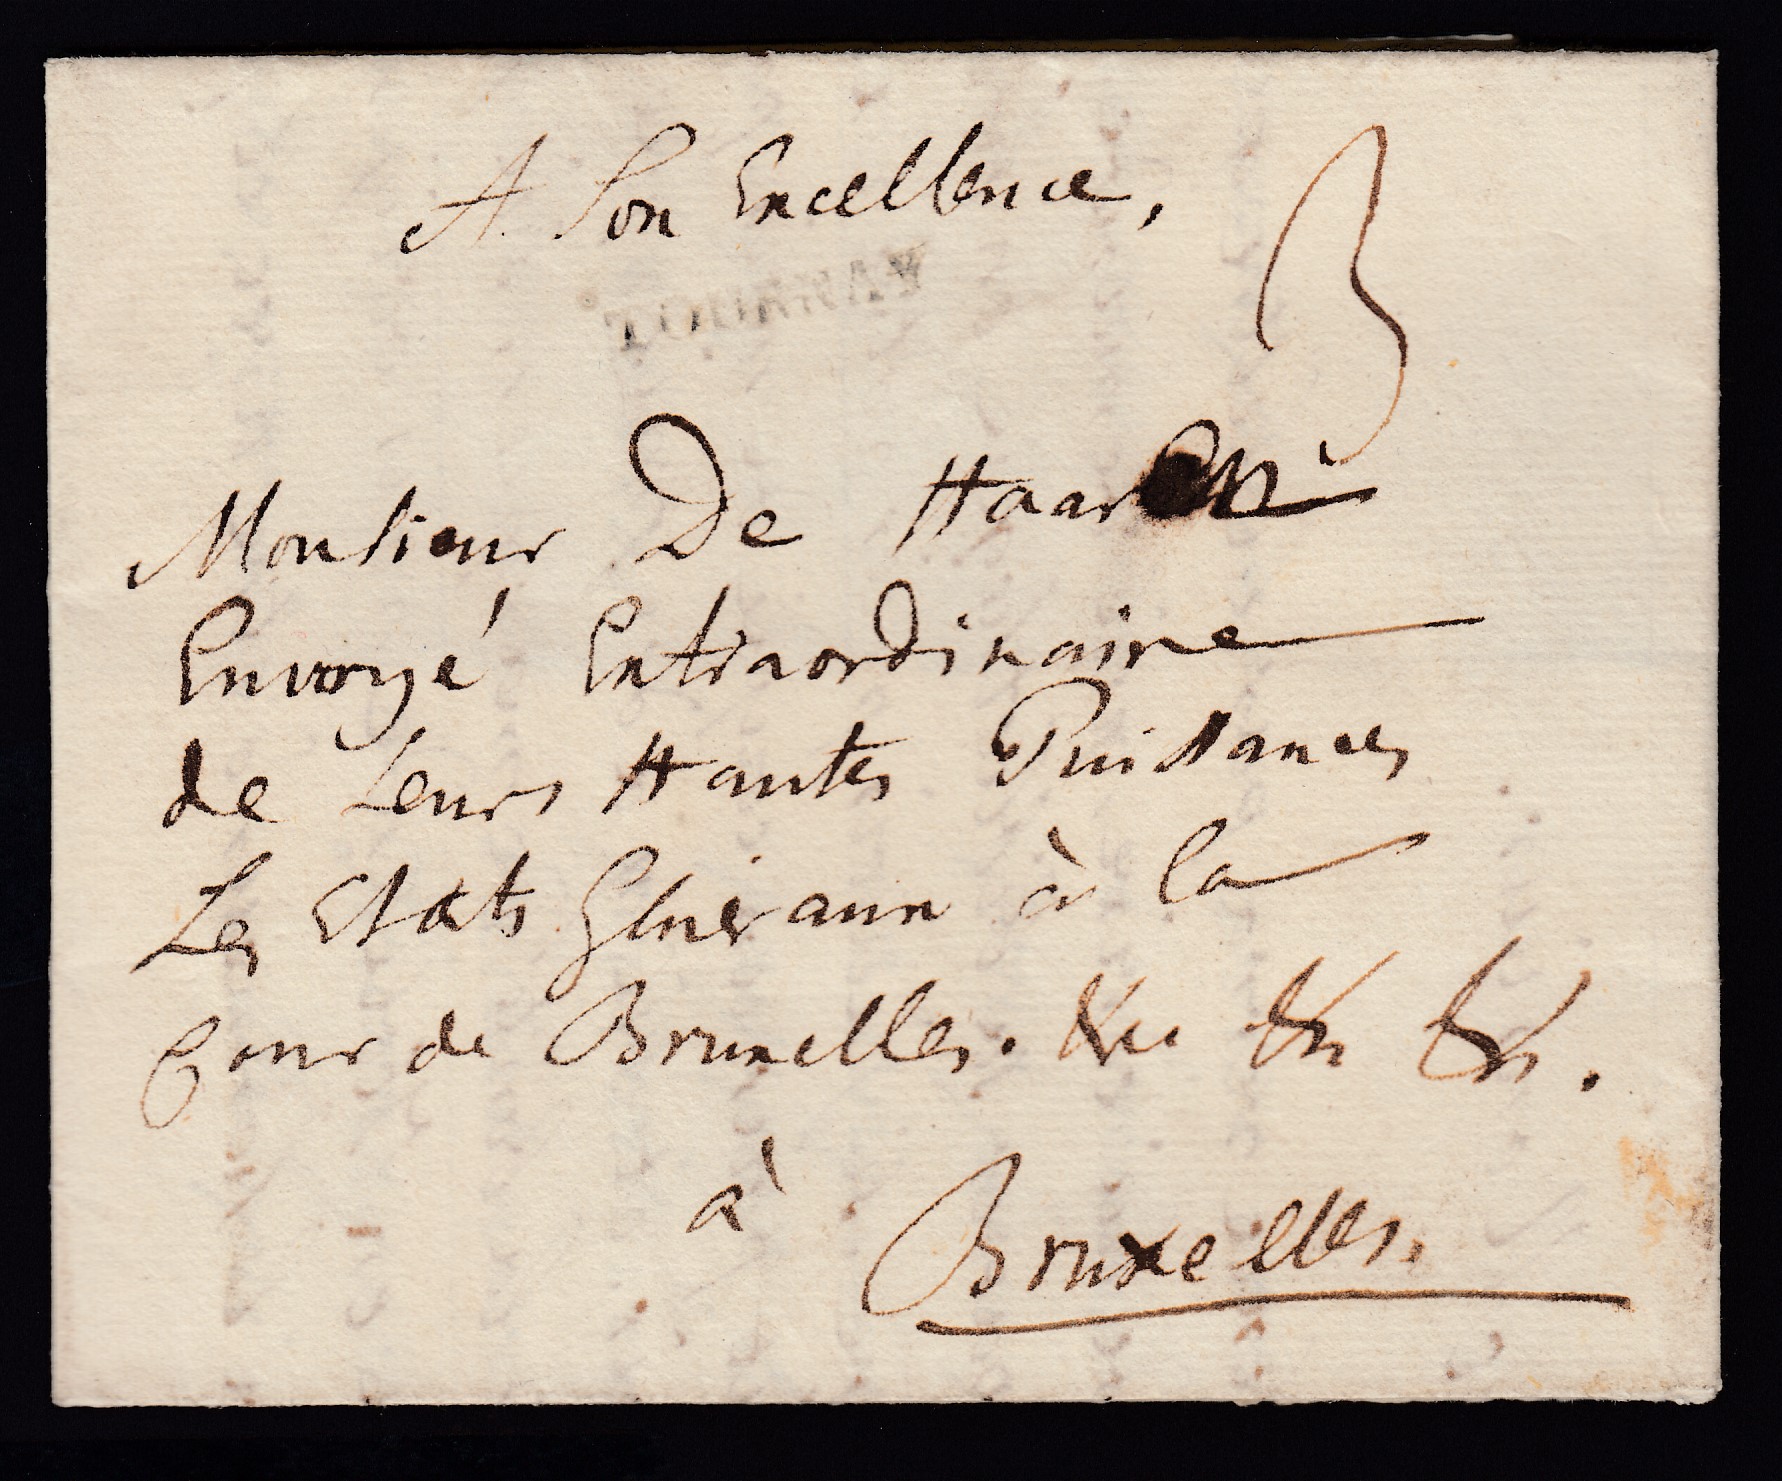 A Son Excellence,
3
TOURNAY
Monsieur De Haaren
Envoyé Extraordinaire
de Leurs Hautes Puissances
Les Etats Généraux à la
Cour de Bruxelles. &c &c &c.
à Bruxelles.